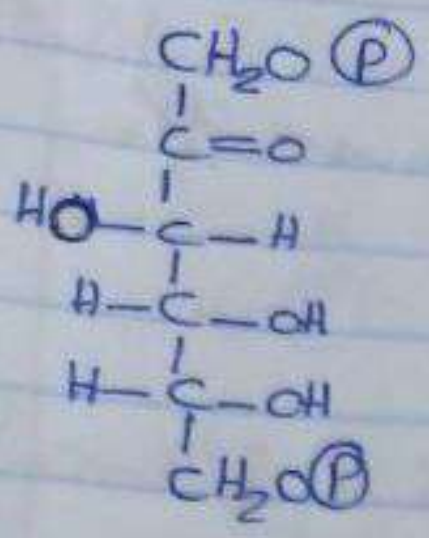 CH₂O Ⓟ
C=O
HO-C-H
H-C-OH
H-C-OH
CH₂OⓅ